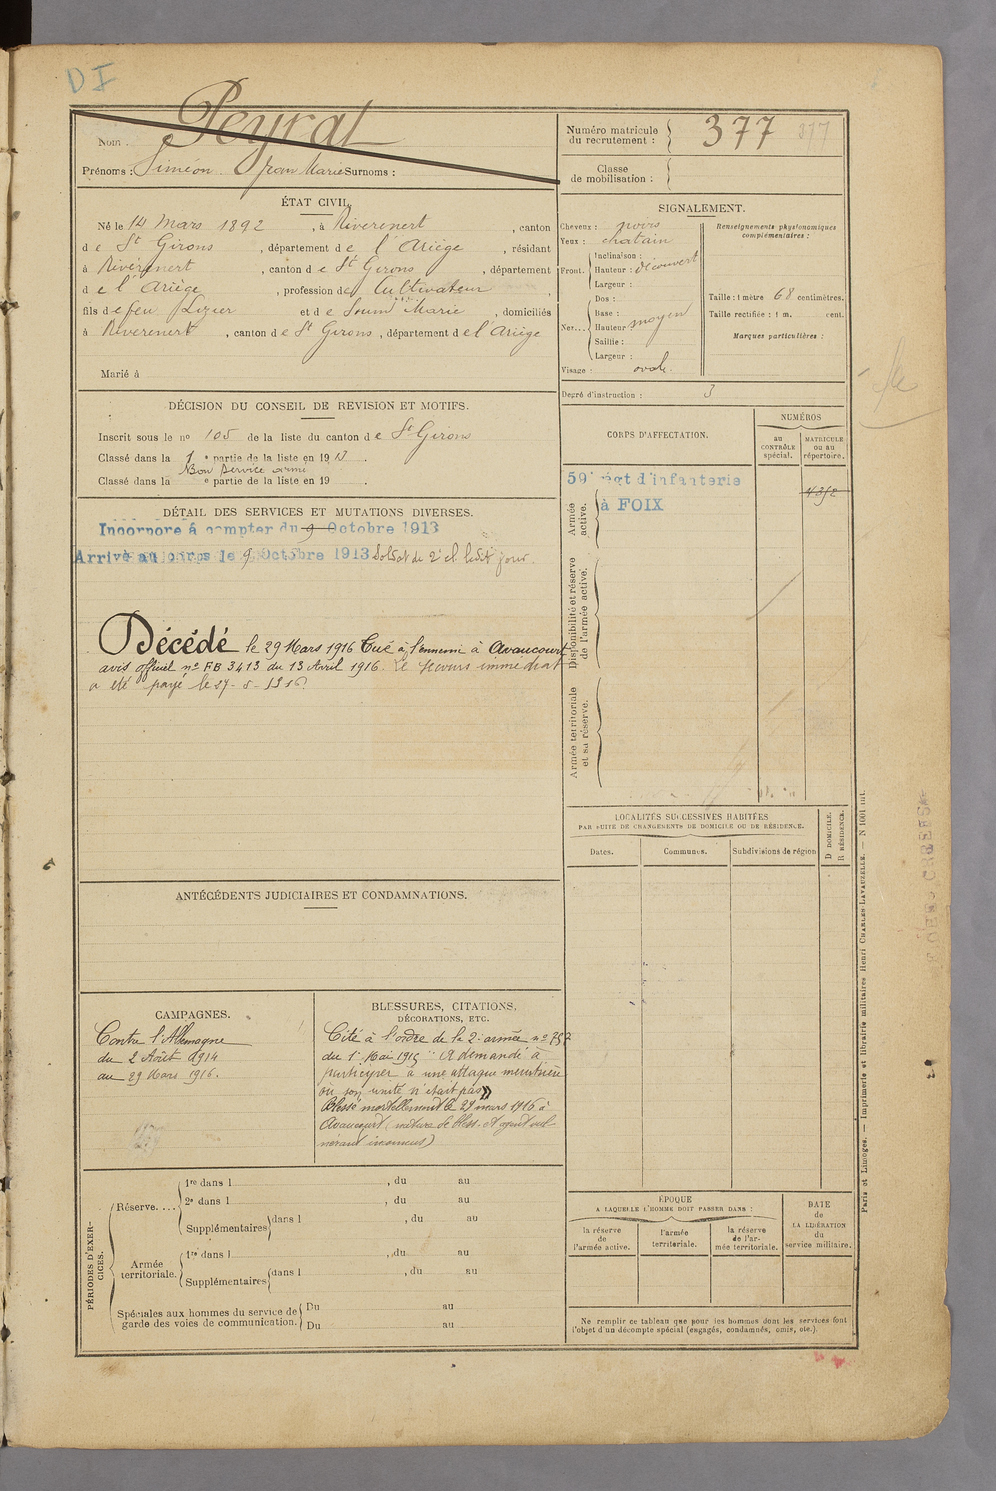 D I
Nom : Peyrat
Prénoms : Siméon Jean Marie Surnoms :
Numéro matricule du recrutement : 377 377
Classe de mobilisation :
ÉTAT CIVIL.
Né le 14 Mars 1892, à Riverenert, canton
de St Girons, département de l'Ariège, résidant
à Rivérenert, canton de St Girons, département
de l'Ariège, profession de Cultivateur
fils de feu Lizier et de Soum Marie, domiciliés
à Riverenert, canton de St Girons, département de l'Ariège
Marié à
SIGNALEMENT.
Cheveux : noirs
Yeux : chatain
Front. Inclinaison :
Hauteur : découvert
Largeur :
Nez... Dos :
Base :
Hauteur moyen
Saillie :
Largeur :
Visage : ovale.
Renseignements physionomiques complémentaires :
Taille : 1 mètre 68 centimètres.
Taille rectifiée : 1 m. cent.
Marques particulières :
Degré d'instruction : 3
DÉCISION DU CONSEIL DE REVISION ET MOTIFS.
Inscrit sous le no 105 de la liste du canton de St Girons
Classé dans la 1e partie de la liste en 1913.
Bon Service armé
Classé dans la e partie de la liste en 19 .
DÉTAIL DES SERVICES ET MUTATIONS DIVERSES.
Incorporé à compter du 9 Octobre 1913
Arrivé au corps le 9 Octobre 1913 Soldat de 2e cl. ledit jour.
Décédé le 29 Mars 1916 Tué à l'ennemi à Avaucourt
avis officiel no FB 3413 du 13 Avril 1916. Le secours immédiat
a été payé le 27-5-1916.
CORPS D'AFFECTATION.
NUMÉROS
au CONTRÔLE spécial.
MATRICULE ou au répertoire.
Armée active.
59e régt d'infanterie
à FOIX
4352
Disponibilité et réserve de l'armée active.
Armée territoriale et sa réserve.
LOCALITÉS SUCCESSIVES HABITÉES
PAR SUITE DE CHANGEMENTS DE DOMICILE OU DE RÉSIDENCE.
Dates.
Communes.
Subdivisions de région
D DOMICILE.
R RÉSIDENCE.
ANTÉCÉDENTS JUDICIAIRES ET CONDAMNATIONS.
CAMPAGNES.
Contre l'Allemagne
du 2 Août 1914
au 29 Mars 1916.
BLESSURES, CITATIONS,
DÉCORATIONS, ETC.
Cité à l'ordre de la 2e armée no 757
du 1er Mai 1915 " A demandé à
participer à une attaque meurtrière
où son unité n'était pas »
Blessé mortellement le 29 mars 1916 à
Avaucourt (nature de bless. et agent vul-
nérant inconnus)
PÉRIODES D'EXERCICES.
Réserve....
1re dans l , du au
2e dans l , du au
Supplémentaires dans l , du au
Armée territoriale.
1re dans l , du au
Supplémentaires dans l , du au
Spéciales aux hommes du service de
garde des voies de communication.
Du au
Du au
ÉPOQUE
A LAQUELLE L'HOMME DOIT PASSER DANS :
la réserve de l'armée active.
l'armée territoriale.
la réserve de l'armée territoriale.
DATE
de
LA LIBÉRATION
du
service militaire.
Ne remplir ce tableau que pour les hommes dont les services font
l'objet d'un décompte spécial (engagés, condamnés, omis, etc.).
Paris et Limoges. — Imprimerie et librairie militaires Henri CHARLES-LAVAUZELLE. — N 1001 int.